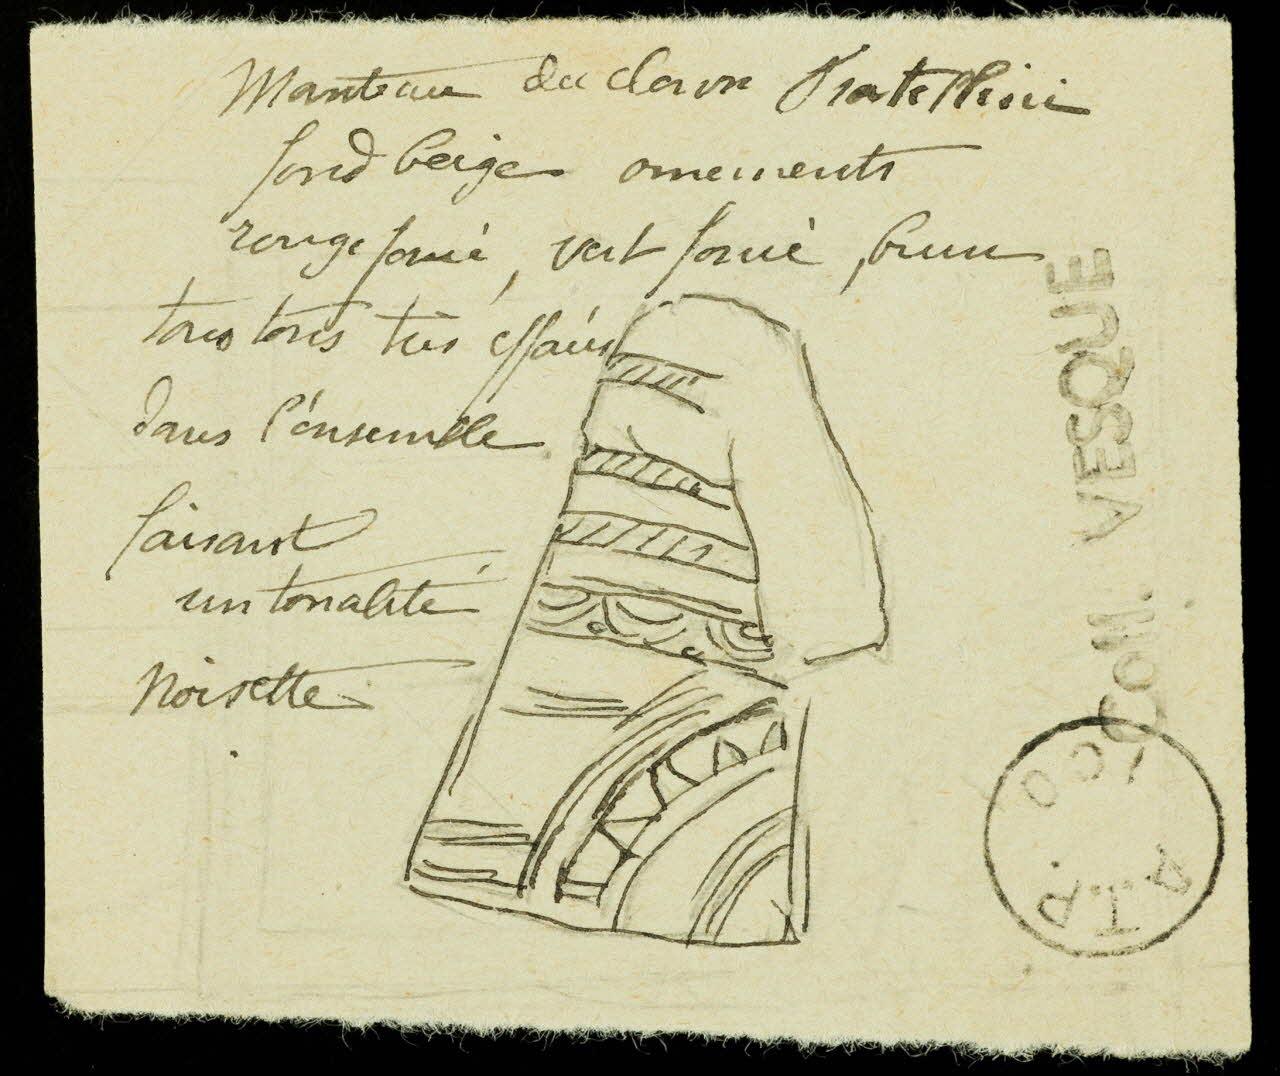 Manteau du clown Fratellini
fond beige ornements
rouge foncé, vert foncé, brun
tons très effacés
dans l'ensemble
faisant
un tonalité
noisette
COLL. VESQUE
A.T.P.